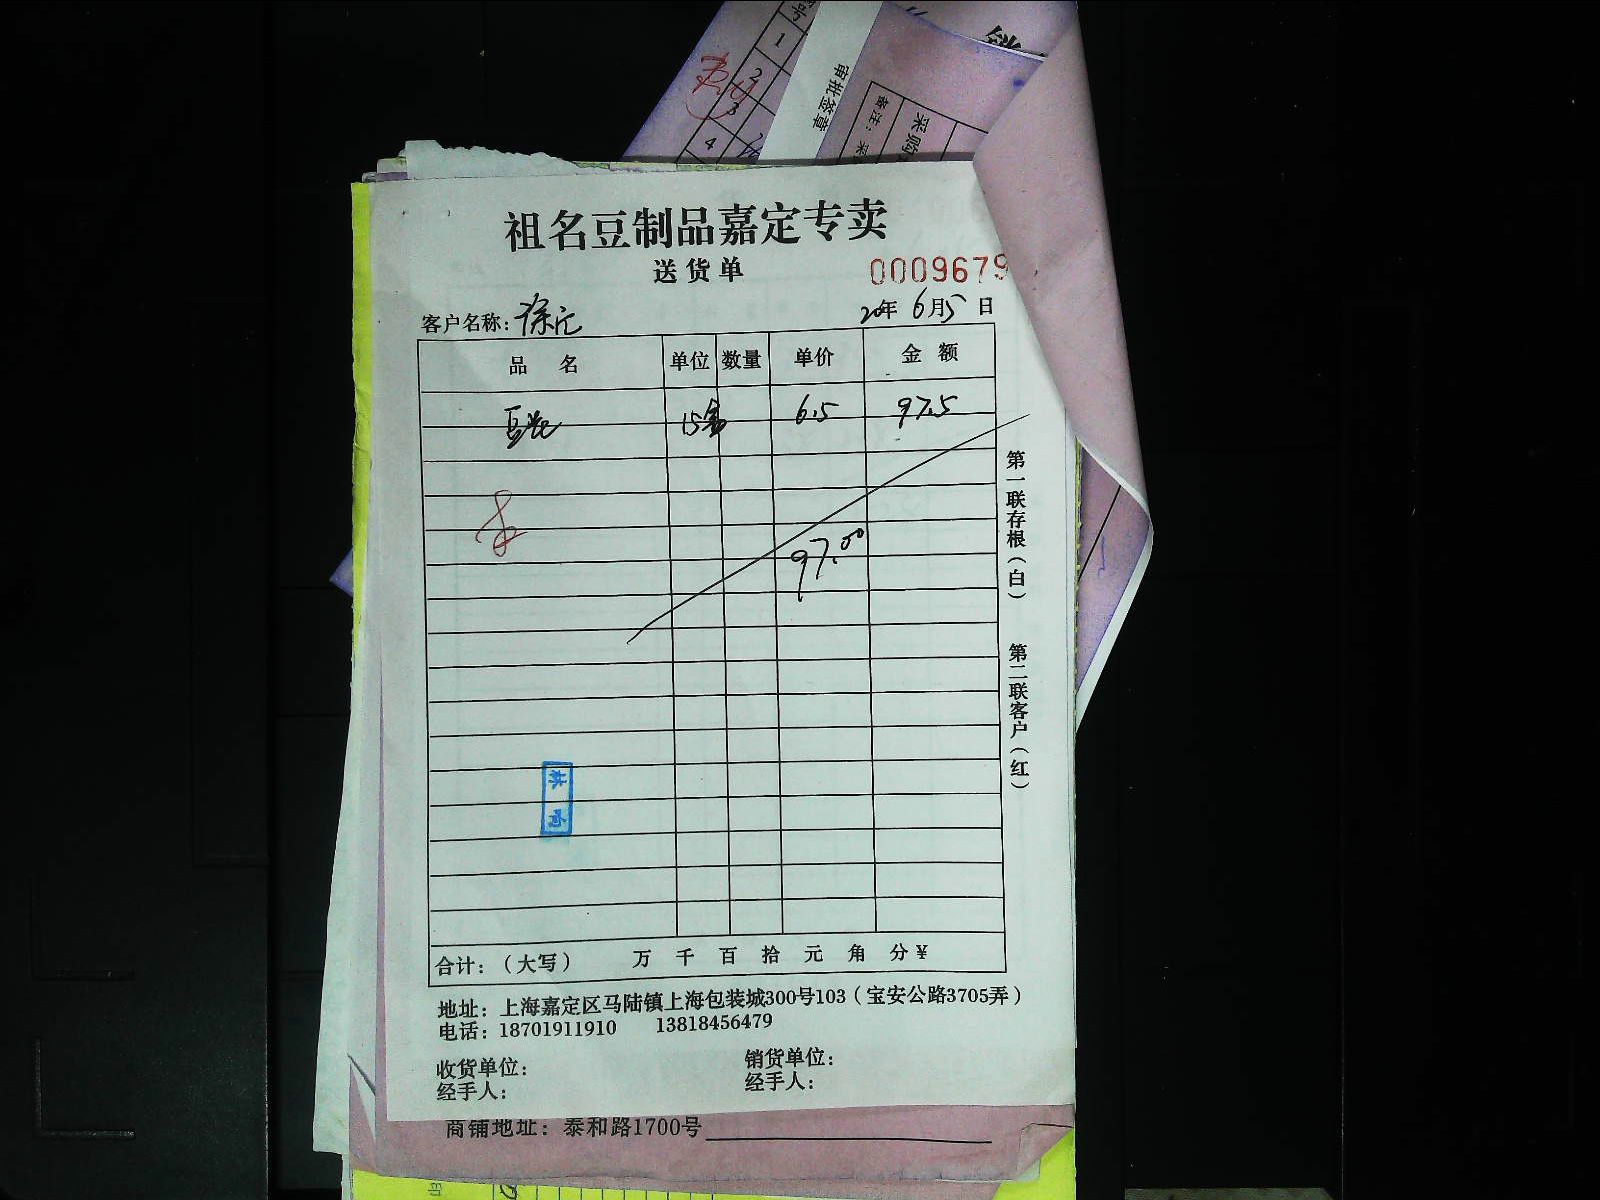 号
1
2
3
4
审批签章
备注：采
采购
销
祖名豆制品嘉定专卖
送货单
0009679
客户名称：徐汇
20年6月5日
品名 单位 数量 单价 金额
15盒 6.5 97.5
97.00
合计：（大写） 万 千 百 拾 元 角 分￥
第一联存根（白）
第二联客户（红）
地址：上海嘉定区马陆镇上海包装城300号103（宝安公路3705弄）
电话：18701911910 13818456479
收货单位： 销货单位：
经手人： 经手人：
商铺地址：泰和路1700号